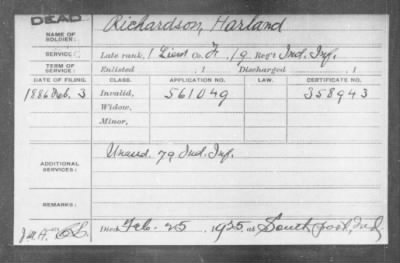 DEAD
NAME OF SOLDIER: Richardson, Harland
SERVICE: Late rank, 1 Lieut Co. F, 19 Reg't Ind. Inf.
TERM OF SERVICE: Enlisted , 1 Discharged , 1
DATE OF FILING. CLASS. APPLICATION NO. LAW. CERTIFICATE NO.
1886 Feb. 3 Invalid, 561049 358943
Widow,
Minor,
ADDITIONAL SERVICES: Unasd. 79 Ind. Inf.
REMARKS:
Died Feb. 25 1925 at Southport, Ind.